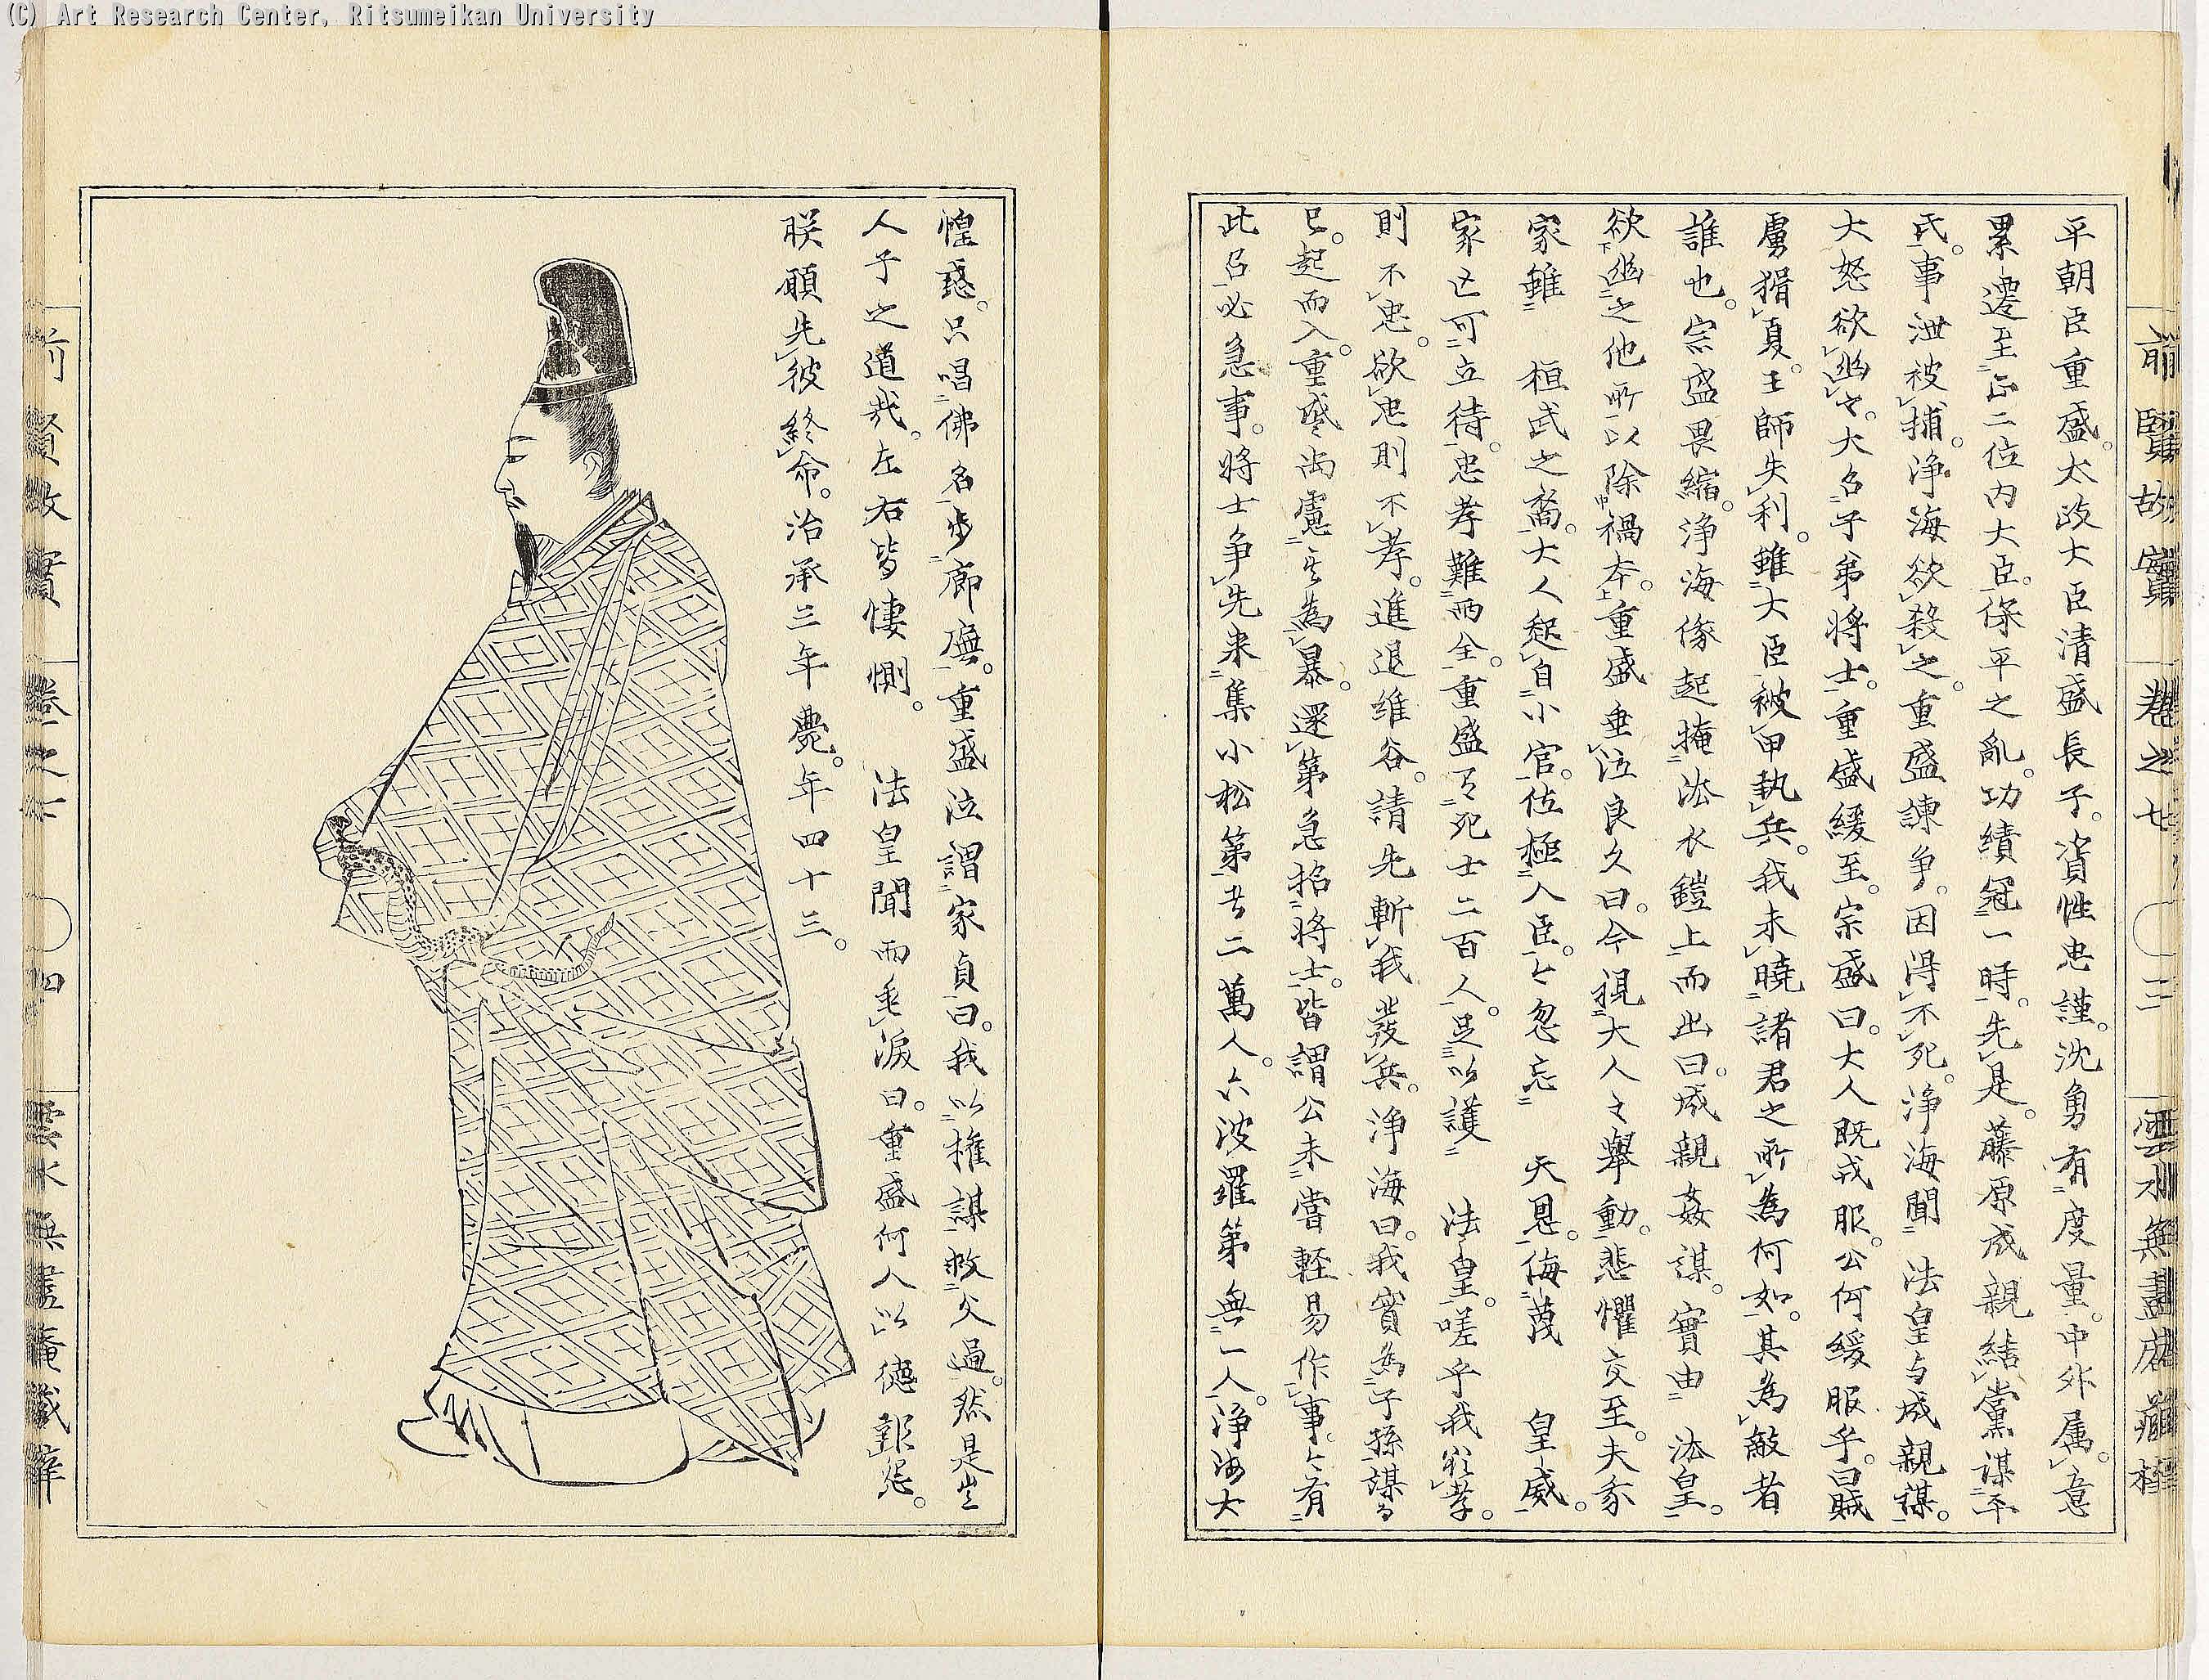 (C) Art Research Center, Ritsumeikan University
前賢故實 卷之七 ○三 雲水無盡庵藏梓
平朝臣重盛。太政大臣清盛長子。資性忠謹。沈勇有度量。中外属意
累遷至正二位内大臣。保平之亂。功績冠一時。先是。藤原成親結黨謀平
氏。事泄被捕。浄海欲殺之。重盛諫争。因得不死。浄海聞 法皇与成親謀。
大怒欲幽之。大召子弟將士。重盛緩至。宗盛曰。大人既戎服。公何緩服乎。曰賊
虜猾夏。王師失利。雖大臣被甲執兵。我未曉諸君之所為何如。其為敵者
誰也。宗盛畏縮。浄海傢起掩法衣鎧上而出曰。成親姦謀。實由 法皇。
欲幽之他所以除禍本。重盛垂泣良久曰。今視大人之舉動。悲懼交至。夫家
家雖 桓武之裔。大人起自小官。位極人臣。今忽忘 天恩。侮蔑 皇威。
家亡可立待。忠孝難両全。重盛有死士二百人。足以護 法皇。嗟乎我欲孝。
則不忠。欲忠則不孝。進退維谷。請先斬我發兵。浄海曰。我實為子孫謀為
已。起而入。重盛尚慮其為暴。還第急招將士。皆謂公未嘗軽易作事。今有
此召必急事。將士争先来集小松第者二萬人。六波羅第無一人。浄海大
惶惑。只唱佛名歩廊廡。重盛泣謂家貞曰。我以權謀救父過。然是豈
人子之道哉。左右皆悽惻。 法皇聞而垂涙曰。重盛何人。以德報怨。
朕願先彼終命。治承三年薨。年四十三。
前賢故實 卷之七 ○四 雲水無盡庵藏梓